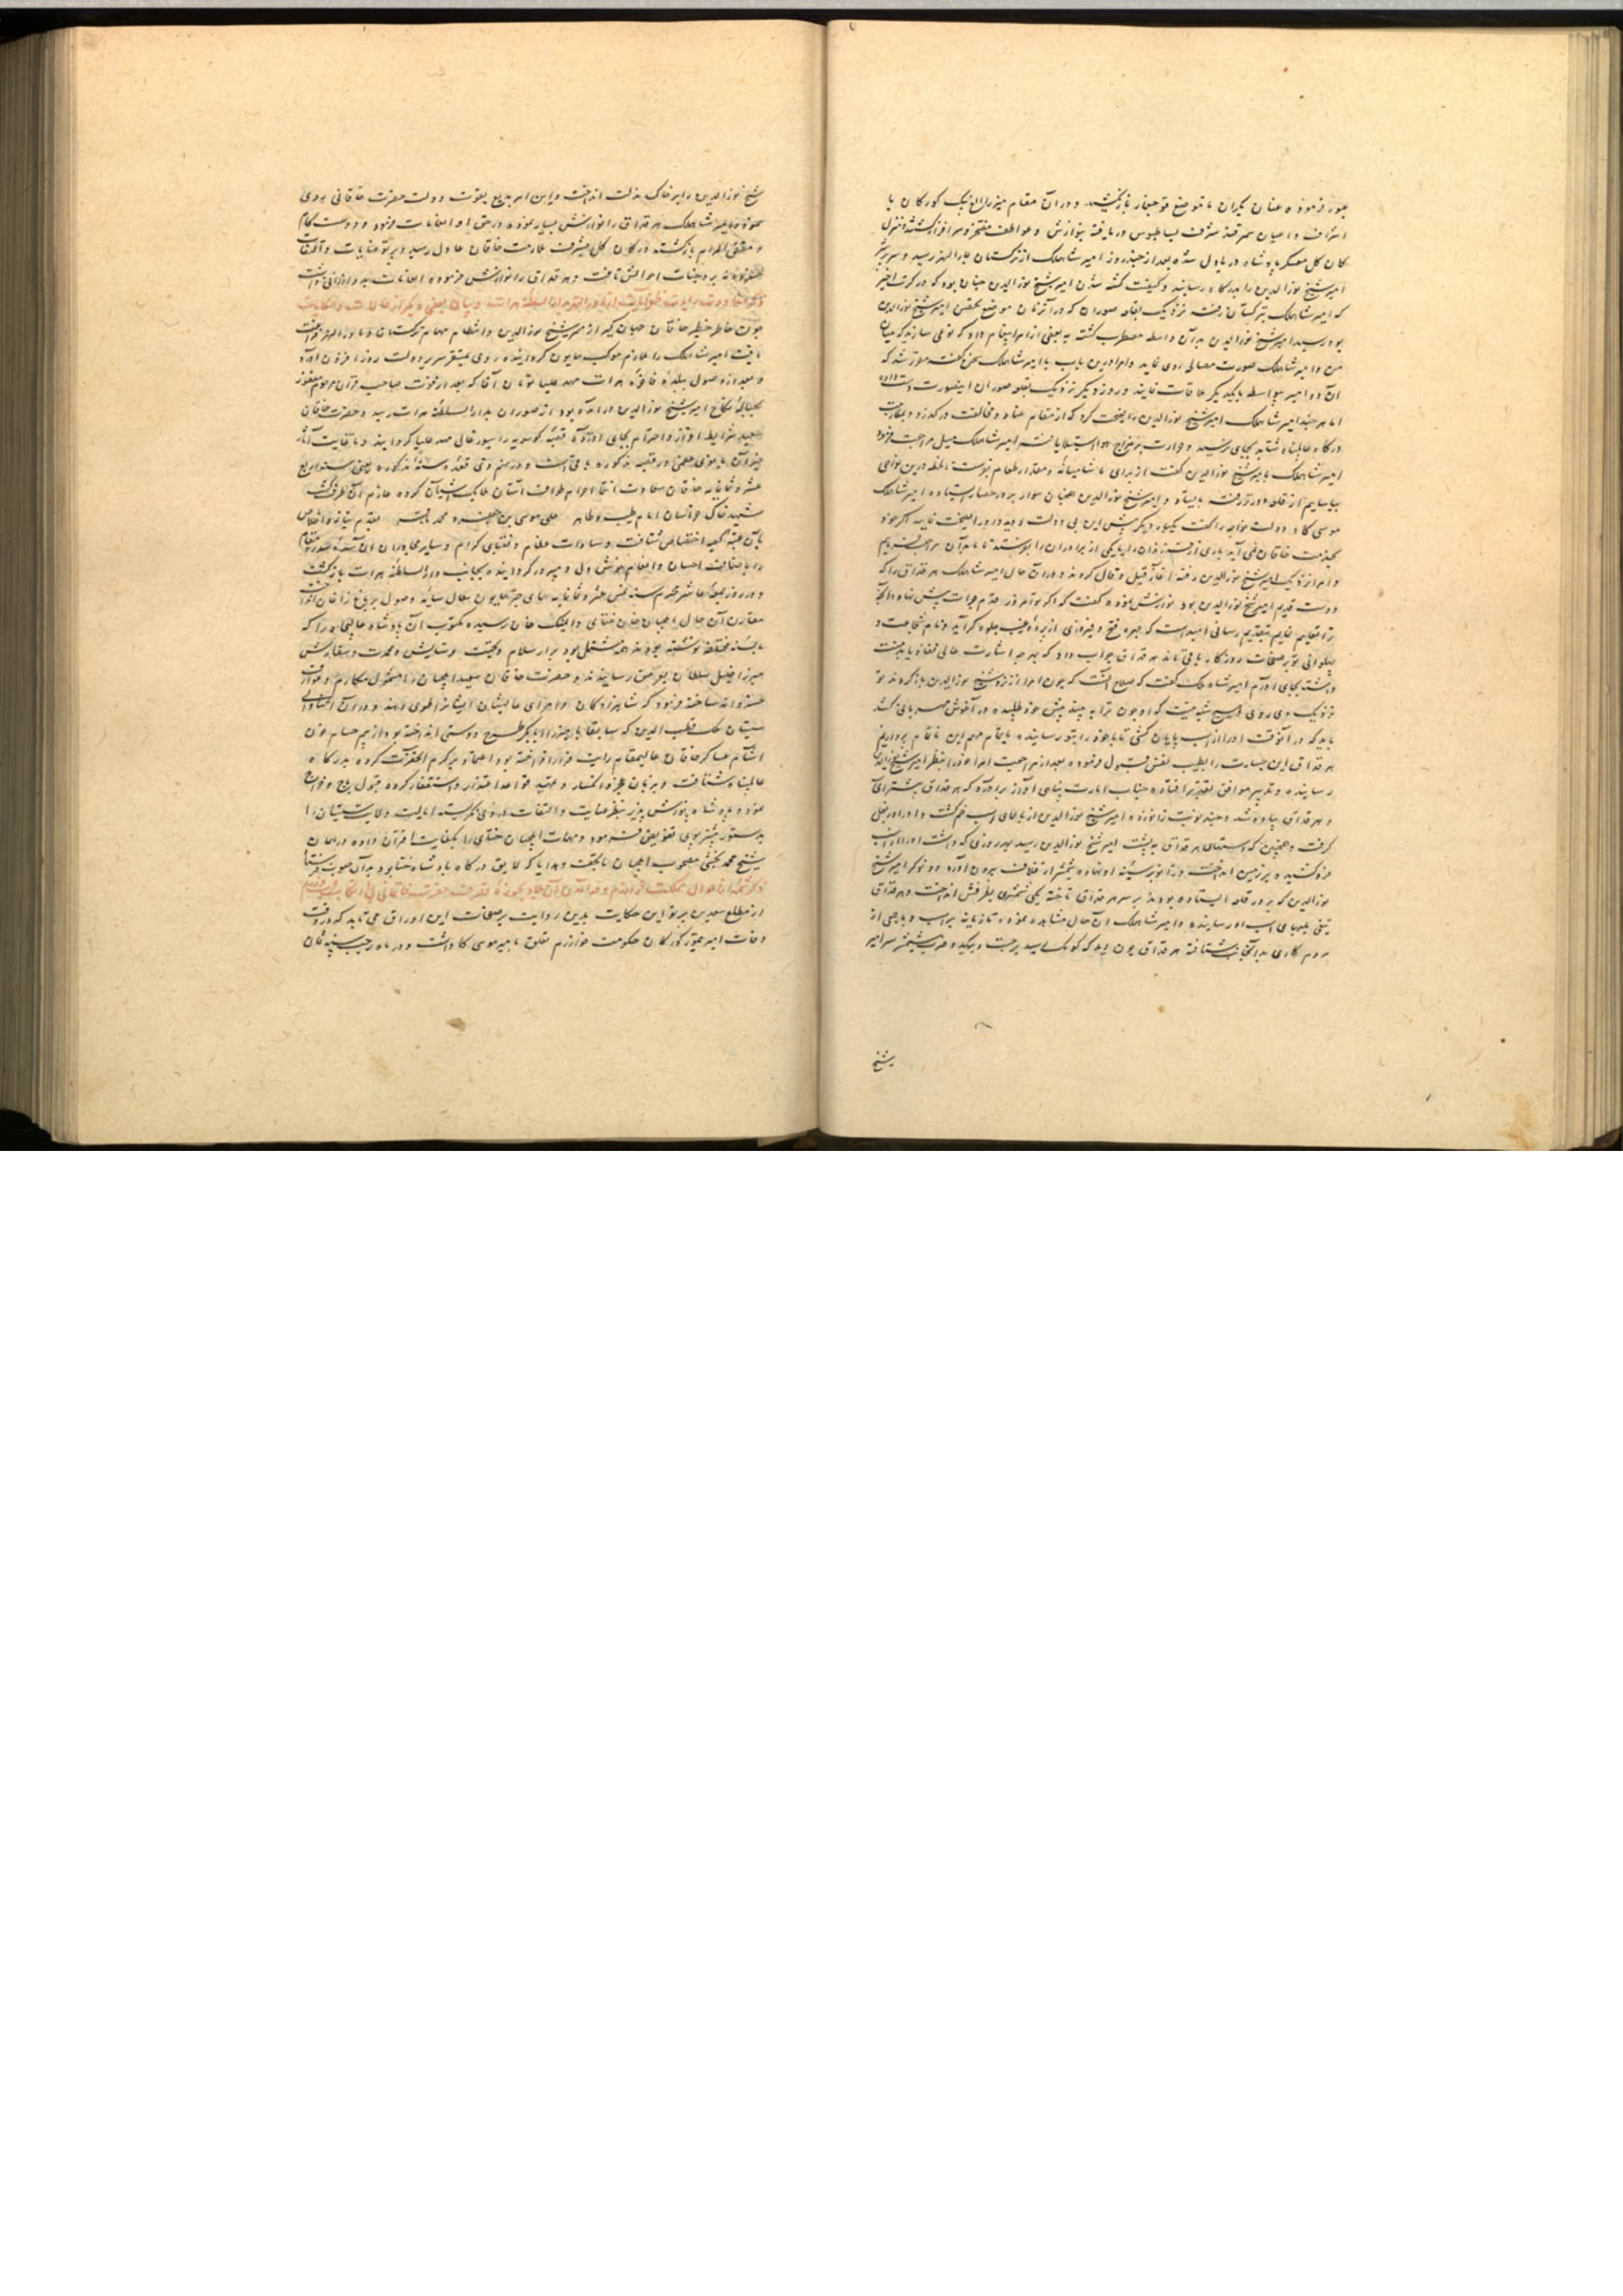 عبور فرموده عنان یکران تا موضع قوجغار باز نکشید و در آن مقام میرزا الغ بیک کورکان با
اشراف و اعیان سمرقند شرف بساطبوس دریافته بنوازش و عواطف مفتخر و سرافراز کشتند
بعد از چند روز امیر شاهملک از ترکستان بماوراالنهر رسید و سر پر شر
امیر شیخ نورالدین را بدرکاه رسانید و کیفیت کشته شدن امیر شیخ نورالدین چنان بود که در کرت اخیر
که امیر شاهملک بترکستان رفت نزدیک بقلعه صوران که در آن زمان موضع تحصن امیر شیخ نورالدین
بود رسید امیر شیخ نورالدین به آن واسطه مضطرب کشته به بعضی از امرا پیغام داد که نوعی سازند که میان
من و امیر شاهملک صورت مصالحه روی نماید و امرا درین باب با امیر شاهملک سخن کفته مقرر شد که
آن دو امیر بواسطه با یکدیکر ملاقات نمایند و روز دیکر نزدیک بقلعه صوران اینصورت دست داده
اما هر چند امیر شاهملک امیر شیخ نورالدین را نصیحت کرد که از مقام عناد و مخالفت درکذرد
درکاه عالمپناه شتابد بجای نرسید و حرارت بر مزاج هوا استیلا یافته امیر شاهملک میل مراجعت فرمود
امیر شاهملک با امیر شیخ نورالدین کفت از برای ما شامیانه و مقداری طعام بفرست تا لحظه درین نواحی
بیاساییم از قلعه دورتر رفته بایستاد و امیر شیخ نورالدین همچنان سوار بر در حصار ایستاده امیر شاهملک
موسی کا و دولت خواجه را کفت یکبار دیکر پیش این بی دولت روید و او را نصیحت نمایید اکر خود
بخدمت خاقان نمی آید باری از فرزندان یا یکی از برادران را بفرستد تا ما بدآن مراجعت نماییم
و امرا نزدیک امیر شیخ نورالدین رفته آغاز قیل و قال کردند و در آن حال امیر شاهملک هرقداق را که
دوست قدیم امیر شیخ نورالدین بود نوازش نموده کفت که اکر تو امروز قدم جرات پیش نهاده آنچه
ترا تعلیم نمایم بتقدیم رسانی امید است که چهره فتح و فیروزی از پرده غیب جلوه کر آید و نام شجاعت و
پهلوانی تو بر صفحات روزکار باقی ماند هرقداق جواب داد که بهر چه اشارت عالی نفاذ یابد منت
داشته بجای آورم امیر شاهملک کفت که صلاح آنست که چون امرا از نزد شیخ نورالدین باز کردند تو
نزدیک وی روی هیچ شبهه نیست که او چون ترا به بیند پیش خود طلبیده در آغوش مهربانی کشد
باید که در آنوقت او را از اسب پایان کشی تا ما خود را بتو رسانیده باتمام مهم این ناتمام پردازیم
هرقداق این جسارت را بطیب نفس قبول فرموده بعد از مراجعت امرا خود را بنظر امیر شیخ نورالدین
رسانیده و تدبیر موافق تقدیر افتاده جناب امارت پناهی آواز برآورد که هرقداق پیشتر آی
و هرقداق پیاده شد و چند نوبت زانو زده امیر شیخ نورالدین از بالای اسب خم کشت و او را در بغل
کرفت و همچنین که دستهای هرقداق به پشت امیر شیخ نورالدین رسید بهر زوری که داشت او را از اسب
فروکشیده بر زمین انداخت و زانو بر سینه او نهاده شمشیر از غلاف بیرون آورد و دو نوکر امیر شیخ
نورالدین که بر در قلعه ایستاده بودند بر سر هرقداق تاخته یکی شمشیری بطرفش انداخت و هرقداق
تیغی بپای اسب او رسانید و امیر شاهملک آن حال مشاهده نموده تازیانه بر اسب زد و با جمعی از
مردم کاری بدانجانب شتافته هرقداق چون دید که کومک رسید برجست و بیکضرب شمشیر سر امیر
شیخ
شیخ نورالدین را بر خاک مذلت انداخت و این امر بدیع بقوت دولت حضرت خاقانی روی
نموده امیر شاهملک هرقداق را نوازش بسیار نموده در حق او انعامات فرمود و دوستکام
و مقضی المرام بازکشته در کان کل بشرف ملازمت خاقان عادل رسید و پرتو عنایات و التفات
خسروانه بر وجنات احوالش تافت و هرقداق را نوازش فرموده انعامات بسیار ارزانی داشت
ذکر مراجعت رایت ظفرآیت از ماوراالنهر بدارالسلطنه هرات و بیان بعضی دیکر از حالات و حکایات
چون خاطر خطیر خاقان جهانکیر از مهر شیخ نورالدین و انتظام مهام ترکستان و ماوراالنهر فراغت
یافت امیر شاهملک را ملازم موکب همایون کردانیده روی بمستقر سریر دولت روزافزون آورد
و بعد از وصول ببلده فاخره هرات مهد علیا تومان آغا که بعد از فوت صاحب قران مرحوم مغفور
بحباله نکاح امیر شیخ نورالدین درآمده بود از صوران بدارالسلطنه هرات رسید و حضرت خاقان
سعید شرایط اعزاز و احترام بجای آورده قصبه کوسویه را سیورغال مهد علیا کردانید و تا غایت آثار
خیر آن بانوی عظمی در قصبه مذکوره باقی است و در پنجم ذی قعده سنه مذکوره یعنی سنه اربع
عشر و ثمانمایه خاقان سعادت انتما احرام طواف آستان ملایک آشیان کرده عازم آن طرف کشت
شهید خاک خراسان امام طیب و طاهر علی موسی بن جعفر و محمد باقر بقدم نیاز و اخلاص
بآن عتبه کعبه اختصاص شتافت و سادات عظام و نقبای کرام و سایر مجاوران آن سده سدره مقام
را باصناف احسان و انعام خوش دل و مسرور کردانیده بجانب دارالسلطنه هرات بازکشت
و در روز جمعه عاشر محرم سنه خمس عشر و ثمانمایه همای چتر همایون فال سایه وصول بر باغ زاغان انداخت
مقارن آن حال ایلچیان خان ختای دایمنک خان رسیده مکتوب آن پادشاه عالیجاه را که
بالسنه مختلفه نوشته بودند همه مشتمل بود بر ارسال سلام و تحیت و ستایش و محمدت و سفارش
میرزا خلیل سلطان بعرض رسانیدند و حضرت خاقان سعید ایلچیان را مشمول مکارم و عوارف
خسروانه ساخته فرمود که شاهزادکان و امرای عالیشان ایشانرا طوی دهند و در آن اثنا والی
سیستان ملک قطب الدین که سابقا با میرزا ابابکر طرح دوستی انداخته بود از بیم حسام خون
آشام عساکر خاقان عالیمقام رایت فرار افراخته بود اعتماد بر کرم آنحضرت کرده بدرکاه
عالمپناه شتافت و بزبان عجز و انکسار و تمهید قواعد اعتذار و استغفار کرده قبول باج و خراج
نمود و پادشاه پوزش پذیر بنظر عنایت و التفات در وی نکریسته ایالت ولایت سیستان را
بدستور پیشتر بوی تفویض فرمود و مهمات ایلچیان ختای را بکفایت اقتران داده در اعلان
شیخ محمد بخشی مصحوب ایلچیان با تحف و هدایا که لایق درکاه پادشاه ختا بود به آن صوب فرستاد
ذکر شمه از احوال مملکت خوارزم و درآمدن آن بلاد بحوزه تصرف حضرت خاقانی
از مطلع سعدین پرتو این حکایت بدین روایت بر صفحات این اوراق می تابد که در وقت
وفات امیر تیمور کورکان حکومت خوارزم تعلق بامیر موسی کا داشت و در ماه رجب سنه ثمان